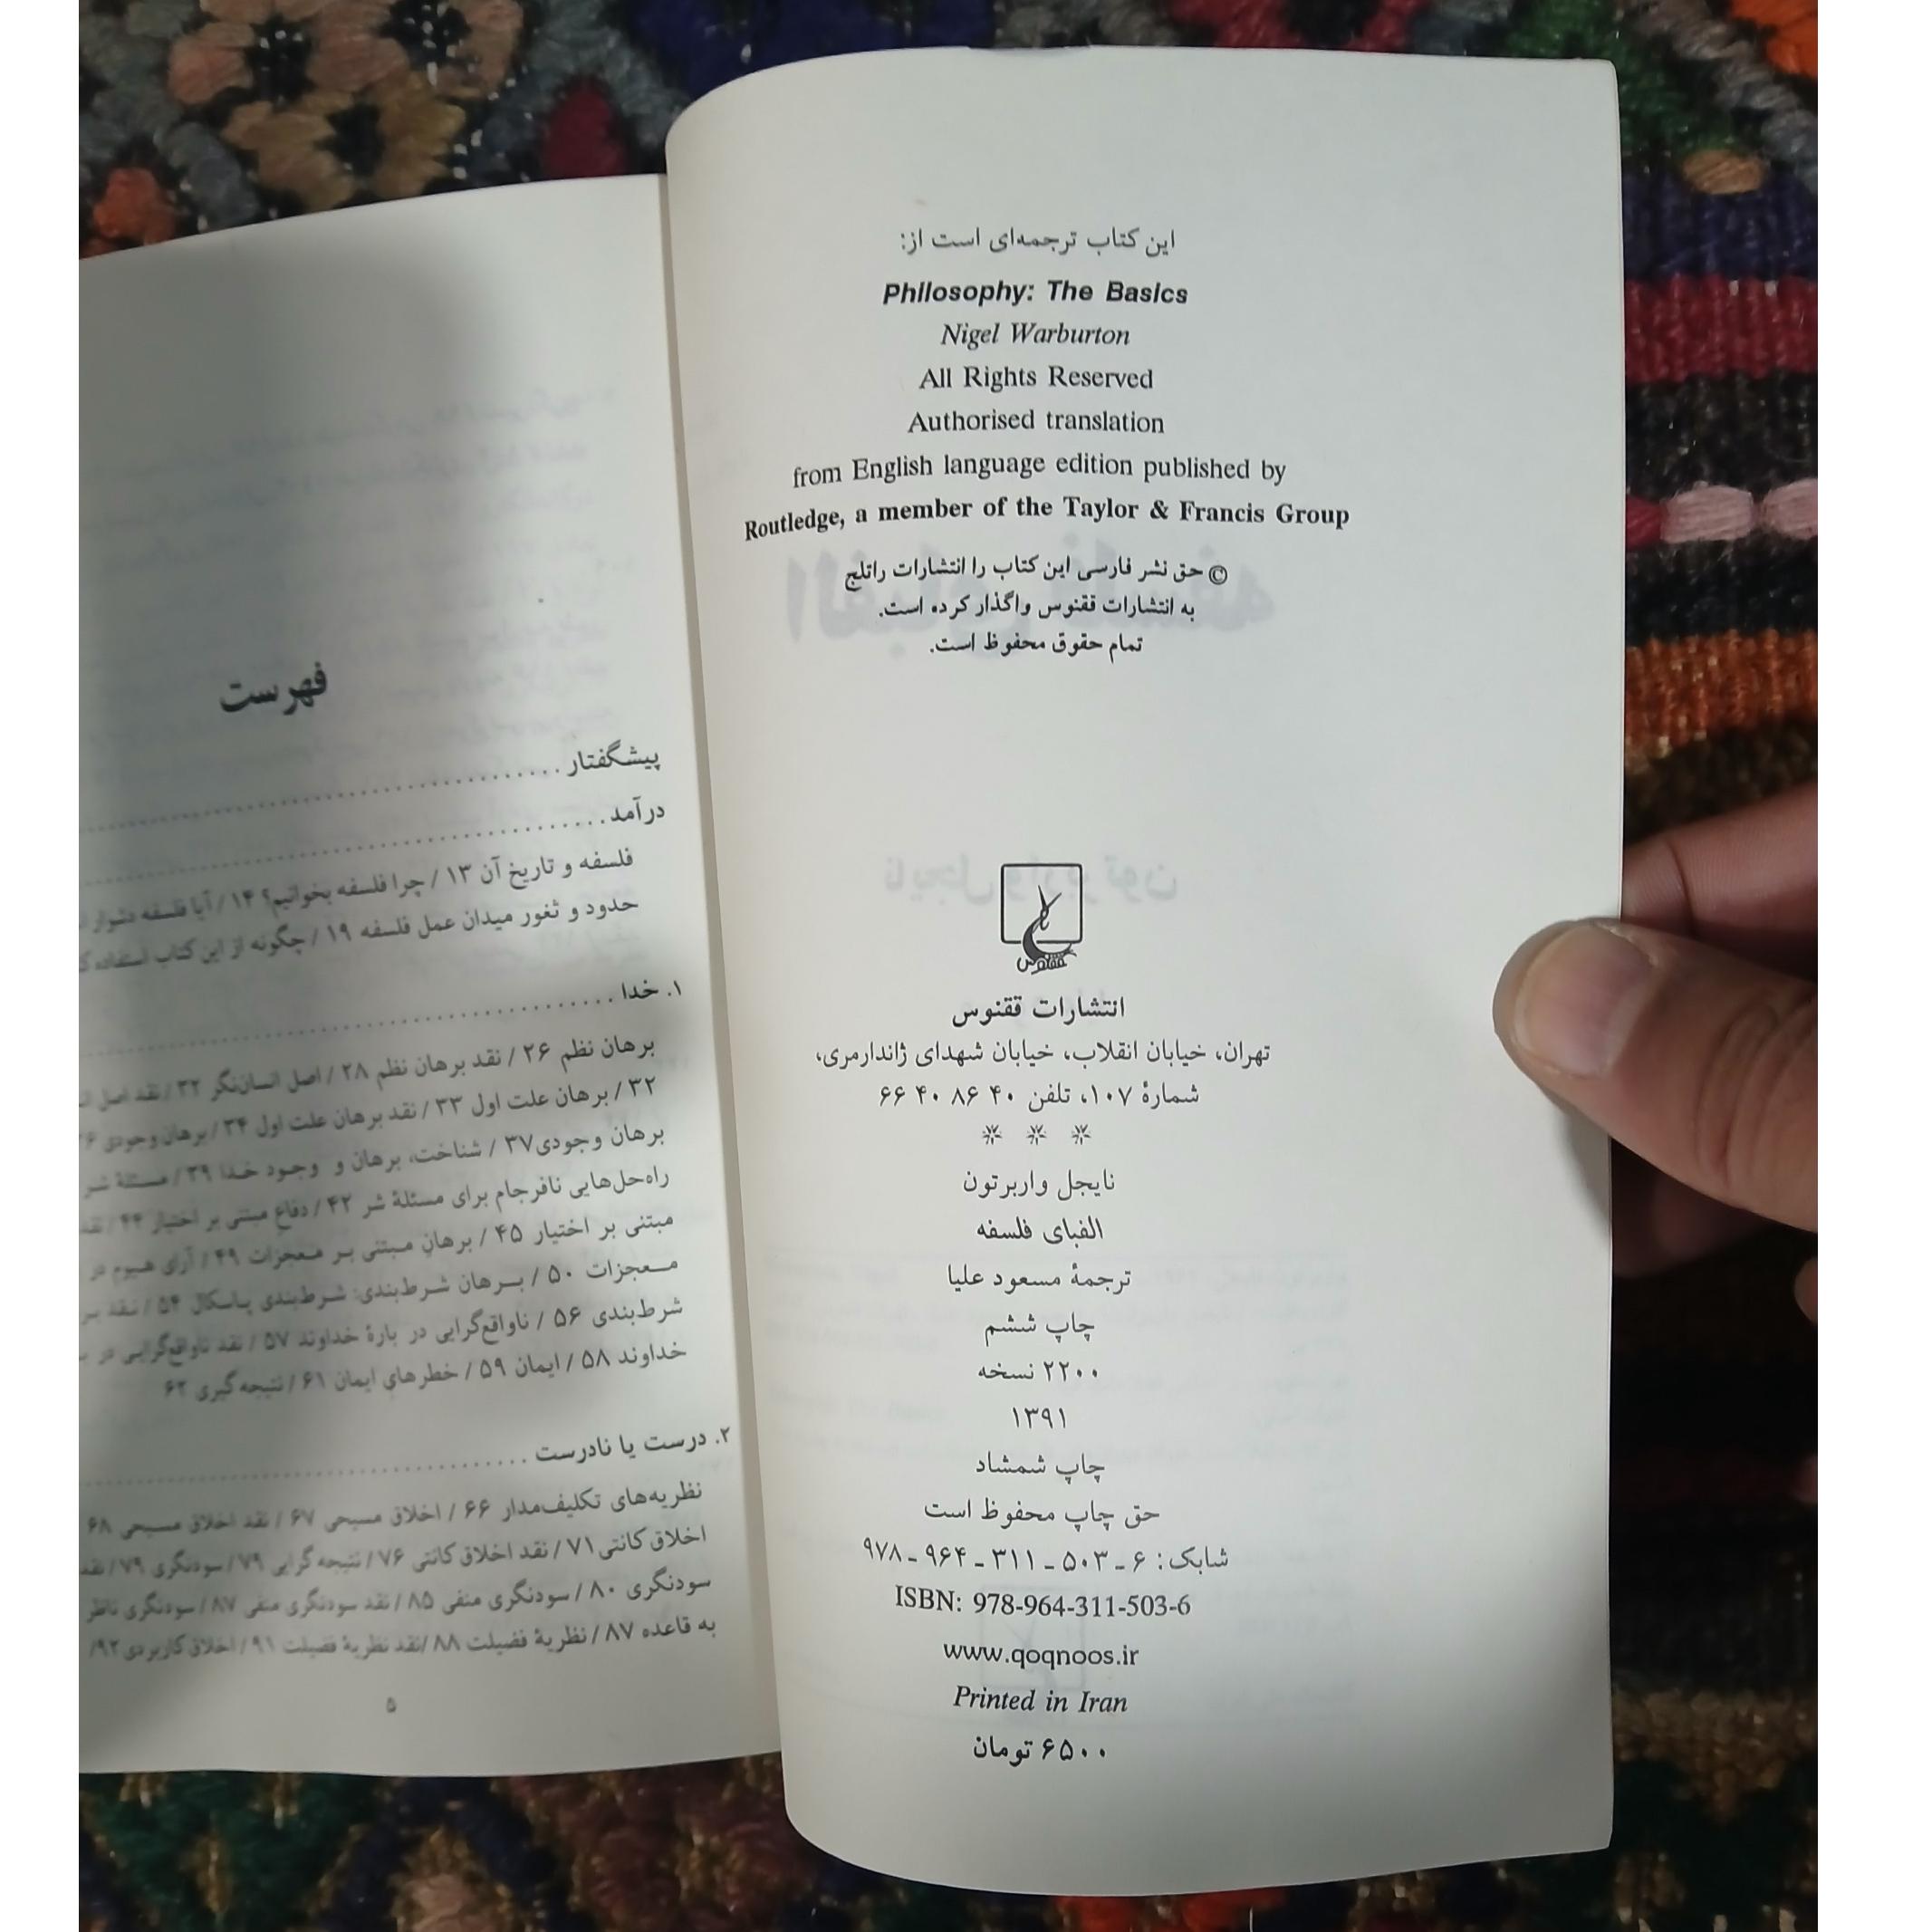 این کتاب ترجمه‌ای است از:
Philosophy: The Basics
Nigel Warburton
All Rights Reserved
Authorised translation
from English language edition published by
Routledge, a member of the Taylor & Francis Group
© حق نشر فارسی این کتاب را انتشارات راتلج
به انتشارات ققنوس واگذار کرده است.
تمام حقوق محفوظ است.
ققنوس
انتشارات ققنوس
تهران، خیابان انقلاب، خیابان شهدای ژاندارمری،
شمارهٔ ۱۰۷، تلفن ۴۰ ۸۶ ۴۰ ۶۶
* * *
نایجل واربرتون
الفبای فلسفه
ترجمهٔ مسعود علیا
چاپ ششم
۲۲۰۰ نسخه
۱۳۹۱
چاپ شمشاد
حق چاپ محفوظ است
شابک: ۶ ـ ۵۰۳ ـ ۳۱۱ ـ ۹۶۴ ـ ۹۷۸
ISBN: 978-964-311-503-6
www.qoqnoos.ir
Printed in Iran
۶۵۰۰ تومان
فهرست
پیشگفتار
درآمد
فلسفه و تاریخ آن ۱۳ / چرا فلسفه بخوانیم؟ ۱۴ / آیا فلسفه دشوار
حدود و ثغور میدان عمل فلسفه ۱۹ / چگونه از این کتاب استفاده
۱. خدا
برهان نظم ۲۶ / نقد برهان نظم ۲۸ / اصل انسان‌نگر ۳۲ / نقد اصل
۳۲ / برهان علت اول ۳۳ / نقد برهان علت اول ۳۴ / برهان وجودی
برهان وجودی ۳۷ / شناخت، برهان و وجود خدا ۳۹ / مسئلهٔ شر
راه‌حل‌هایی نافرجام برای مسئلهٔ شر ۴۲ / دفاع مبتنی بر اختیار ۴۴ /
مبتنی بر اختیار ۴۵ / برهانِ مبتنی بر معجزات ۴۹ / آرای هیوم در
معجزات ۵۰ / برهان شرط‌بندی: شرط‌بندی پاسکال ۵۴ / نقد
شرط‌بندی ۵۶ / ناواقع‌گرایی در بارهٔ خداوند ۵۷ / نقد ناواقع‌گرایی در
خداوند ۵۸ / ایمان ۵۹ / خطرهای ایمان ۶۱ / نتیجه‌گیری ۶۲
۲. درست یا نادرست
نظریه‌های تکلیف‌مدار ۶۶ / اخلاق مسیحی ۶۷ / نقد اخلاق مسیحی ۶۸
اخلاق کانتی ۷۱ / نقد اخلاق کانتی ۷۶ / نتیجه گرایی ۷۹ / سودنگری ۷۹ / نقد
سودنگری ۸۰ / سودنگری منفی ۸۵ / نقد سودنگری منفی ۸۷ / سودنگری ناظر
به قاعده ۸۷ / نظریهٔ فضیلت ۸۸ / نقد نظریهٔ فضیلت ۹۱ / اخلاق کاربردی ۹۲ /
۵